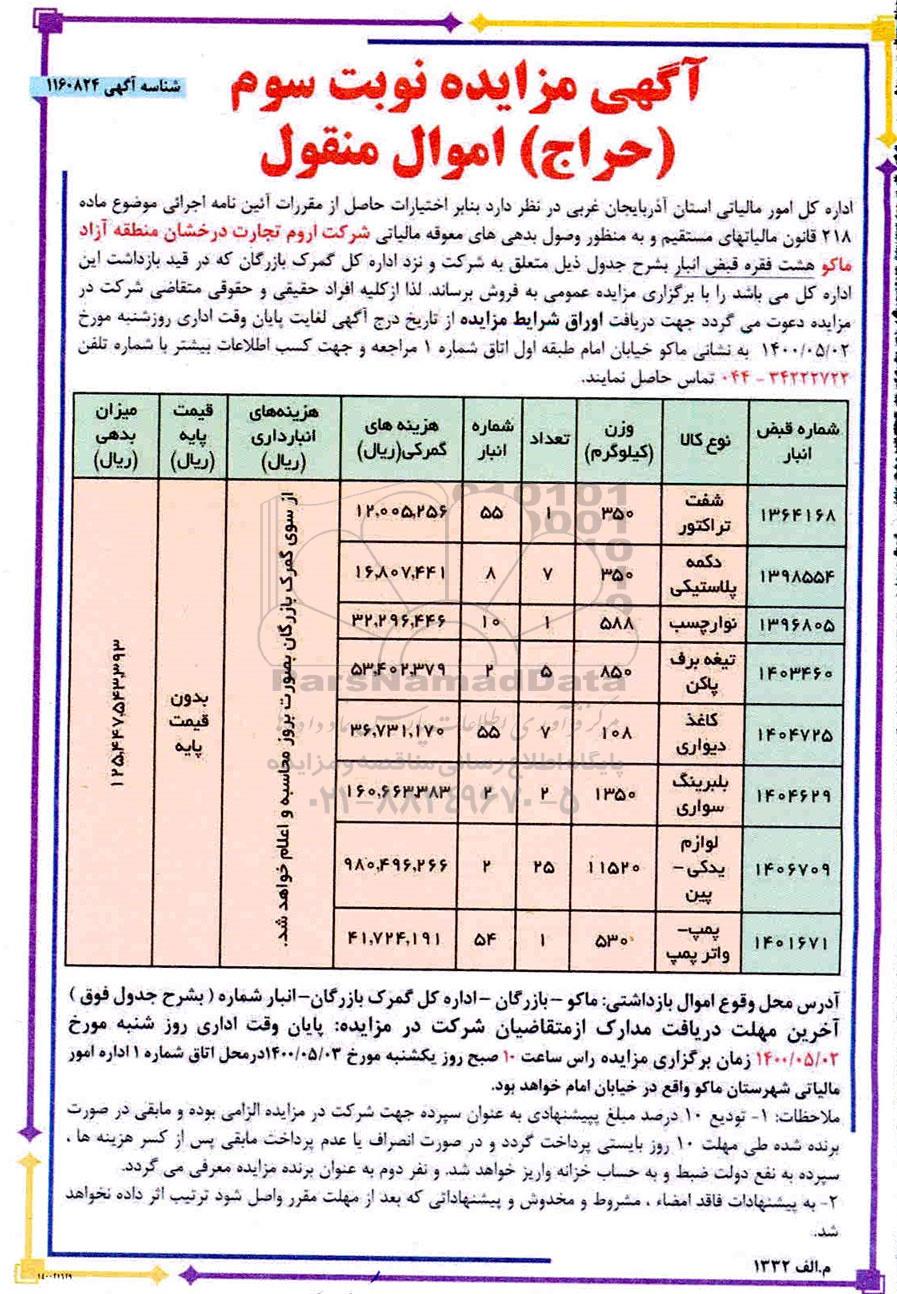 شناسه آگهی ۱۱۶۰۸۲۴
آگهی مزایده نوبت سوم
(حراج) اموال منقول
اداره کل امور مالیاتی استان آذربایجان غربی در نظر دارد بنابر اختیارات حاصل از مقررات آئین نامه اجرائی موضوع ماده
۲۱۸ قانون مالیاتهای مستقیم و به منظور وصول بدهی های معوقه مالیاتی شرکت اروم تجارت درخشان منطقه آزاد
ماکو هشت فقره قبض انبار بشرح جدول ذیل متعلق به شرکت و نزد اداره کل گمرک بازرگان که در قید بازداشت این
اداره کل می باشد را با برگزاری مزایده عمومی به فروش برساند. لذا ازکلیه افراد حقیقی و حقوقی متقاضی شرکت در
مزایده دعوت می گردد جهت دریافت اوراق شرایط مزایده از تاریخ درج آگهی لغایت پایان وقت اداری روزشنبه مورخ
۱۴۰۰/۰۵/۰۲ به نشانی ماکو خیابان امام طبقه اول اتاق شماره ۱ مراجعه و جهت کسب اطلاعات بیشتر با شماره تلفن
۳۴۲۲۲۷۲۲ - ۰۴۴ تماس حاصل نمایند.
شماره قبض انبار | نوع کالا | وزن (کیلوگرم) | تعداد | شماره انبار | هزینه های گمرکی(ریال) | هزینه‌های انبارداری (ریال) | قیمت پایه (ریال) | میزان بدهی (ریال)
۱۳۶۴۱۶۸ | شفت تراکتور | ۳۵۰ | ۱ | ۵۵ | ۱۲,۰۰۵,۲۵۶
۱۳۹۸۵۵۴ | دکمه پلاستیکی | ۳۵۰ | ۷ | ۸ | ۱۶,۸۰۷,۴۴۱
۱۳۹۶۸۰۵ | نوارچسب | ۵۸۸ | ۱ | ۱۰ | ۳۲,۲۹۶,۴۴۶
۱۴۰۳۴۶۰ | تیغه برف پاکن | ۸۵۰ | ۵ | ۲ | ۵۳,۴۰۲,۳۷۹
۱۴۰۴۷۲۵ | کاغذ دیواری | ۱۰۸ | ۷ | ۵۵ | ۳۶,۷۳۱,۱۷۰
۱۴۰۴۶۲۹ | بلبرینگ سواری | ۱۳۵۰ | ۲ | ۲ | ۱۶۰,۶۶۳,۳۸۳
۱۴۰۶۷۰۹ | لوازم یدکی – پین | ۱۱۵۲۰ | ۲۵ | ۲ | ۹۸۰,۴۹۶,۲۶۶
۱۴۰۱۶۷۱ | پمپ– واتر پمپ | ۵۳۰ | ۱ | ۵۴ | ۴۱,۷۲۴,۱۹۱
از سوی گمرک بازرگان بصورت بروز محاسبه و اعلام خواهد شد.
بدون قیمت پایه
۱۲۵,۴۴۷,۵۴۳,۳۹۳
ParsNamadData
پایگاه اطلاع رسانی مناقصه و مزایده
۰۲۱-۸۸۳۴۹۶۷۰-۵
آدرس محل وقوع اموال بازداشتی: ماکو – بازرگان – اداره کل گمرک بازرگان– انبار شماره ( بشرح جدول فوق )
آخرین مهلت دریافت مدارک ازمتقاضیان شرکت در مزایده: پایان وقت اداری روز شنبه مورخ
۱۴۰۰/۰۵/۰۲ زمان برگزاری مزایده راس ساعت ۱۰ صبح روز یکشنبه مورخ ۱۴۰۰/۰۵/۰۳درمحل اتاق شماره ۱ اداره امور
مالیاتی شهرستان ماکو واقع در خیابان امام خواهد بود.
ملاحظات: ۱- تودیع ۱۰ درصد مبلغ پیپشنهادی به عنوان سپرده جهت شرکت در مزایده الزامی بوده و مابقی در صورت
برنده شده طی مهلت ۱۰ روز بایستی پرداخت گردد و در صورت انصراف یا عدم پرداخت مابقی پس از کسر هزینه ها ،
سپرده به نفع دولت ضبط و به حساب خزانه واریز خواهد شد. و نفر دوم به عنوان برنده مزایده معرفی می گردد.
۲- به پیشنهادات فاقد امضاء ، مشروط و مخدوش و پیشنهاداتی که بعد از مهلت مقرر واصل شود ترتیب اثر داده نخواهد
شد.
م.الف ۱۳۳۲